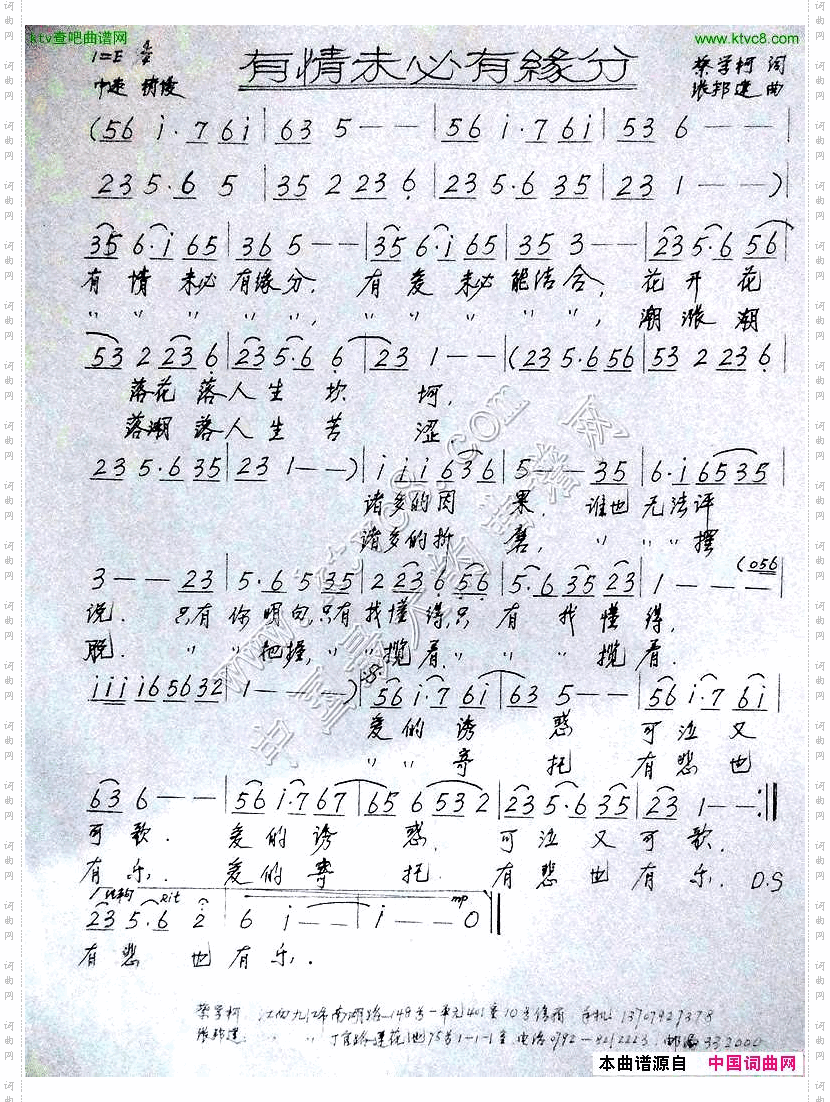 ktv查吧曲谱网 www.ktvc8.com
1=E 4/4 有情未必有緣分 蔡学柯 词
中速 稍慢 张邦建 曲
(56 i·7 6i | 63 5 — — | 56 i·7 6i | 53 6 — — |
23 5·6 5 | 35 2 23 6 | 23 5·6 35 | 23 1 — — ) |
35 6·i 65 | 36 5 — — | 35 6·i 65 | 35 3 — — | 23 5·6 56 |
有情未必有缘分, 有爱未必能结合, 花开花
〃 〃 〃 〃 〃, 〃 〃 〃 〃 〃, 潮涨潮
53 2 23 6 | 23 5·6 6 | 23 1 — — | (23 5·6 56 | 53 2 23 6 |
落花落人生坎坷,
落潮落人生苦涩
23 5·6 35 | 23 1 — — ) | i i i 6 36 | 5 — — 35 | 6·i 65 35 |
诸多的因果, 谁也无法评
诸多的折磨, 〃 〃 〃 摆
3 — — 23 | 5·6 5 35 | 2 23 6 56 | 5·6 35 23 | 1 — — — (056 |
说. 只有你明白,只有找懂得,只有找懂得,
脱. 〃 〃 把握, 〃 〃 揽着, 〃 〃 〃 揽着.
i i i i6 56 32 | 1 — — ) | 56 i·7 6i | 63 5 — — | 56 i·7 6i |
爱的诱惑 可泣又
〃 〃 寄托 有悲也
63 6 — — | 56 i·7 67 | 65 6 53 2 | 23 5·6 35 | 23 1 — — :||
可歌. 爱的诱惑, 可泣又可歌,
有乐. 爱的寄托. 有悲也有乐. D.S
结构 Rit mp
23 5·6 2 | 6 i — — | i — — 0 ||
有悲也有乐.
蔡学柯: 江西九江市南湖路148号一单元401室10号信箱 手机: 13707927378
张邦建: 〃 〃 丁官路莲花池75号1-1-1室 电话0792—8212223 邮编332000
本曲谱源自 中国词曲网